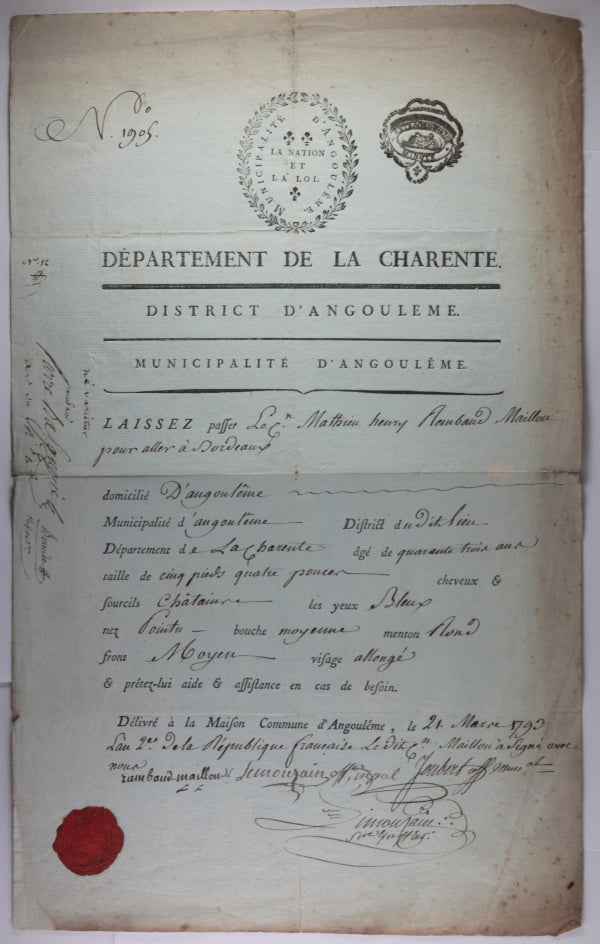 N.do 1905.
MUNICIPALITÉ D'ANGOULÊME.
LA NATION
ET
LA LOI.
DÉPARTEMENT DE LA CHARENTE.
DISTRICT D'ANGOULEME.
MUNICIPALITÉ D'ANGOULÊME.
LAISSEZ passer Le C.n Mathieu henry Rambaud Maillou
pour aller à Bordeaux
domicilié D'angoulême
Municipalité d'angoulême District du dit lieu
Département de La Charente âgé de quarante trois ans
taille de cinq pieds quatre pouces cheveux &
sourcils Châtains les yeux Bleux
nez Pointu bouche moyenne menton Rond
front Moyen visage allongé
& prêtez-lui aide & assistance en cas de besoin.
Délivré à la Maison Commune d'Angoulême, le 21. Mars 1793
L'an 2.e de la République francaise Le dit C.n Maillou a Signé avec
nous
rambaud maillou Limouzain off. Joubert off. mun.al
Limouzain
ne varietur
rambaud